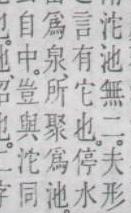 沱池無二。夫形
言有它也。停水
爲泉所聚爲池。
自中。豈與沱同
也。沼也。一字